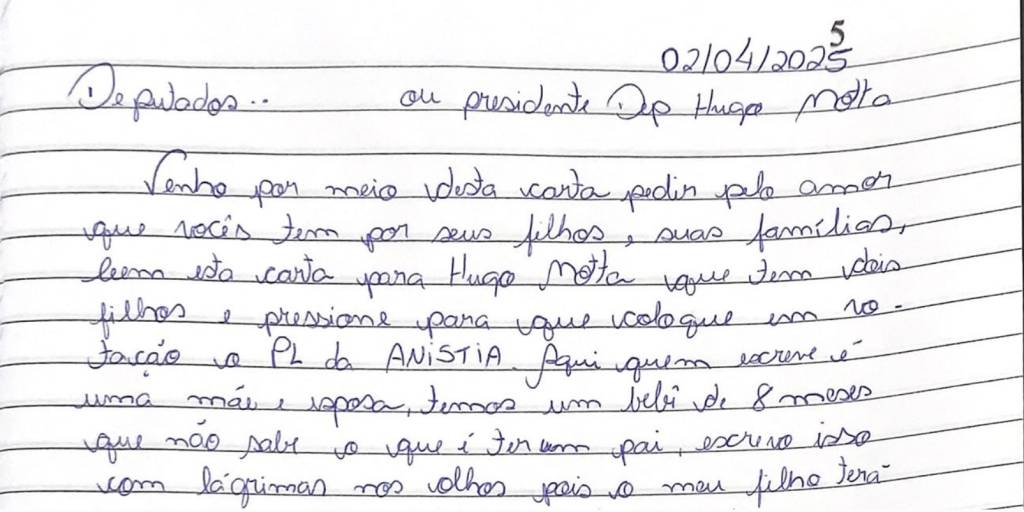 02/04/2025
Deputados.. ou presidente Dep Hugo Motta
Venho por meio desta carta pedir pelo amor
que vocês tem por seus filhos, suas famílias,
leem esta carta para Hugo Motta que tem dois
filhos e pressione para que coloque em vo-
tação o PL da ANISTIA. Aqui quem escreve é
uma mãe e esposa, temos um bebê de 8 meses
que não sabe o que é ter um pai, escrevo isso
com lágrimas nos olhos pois o meu filho terá